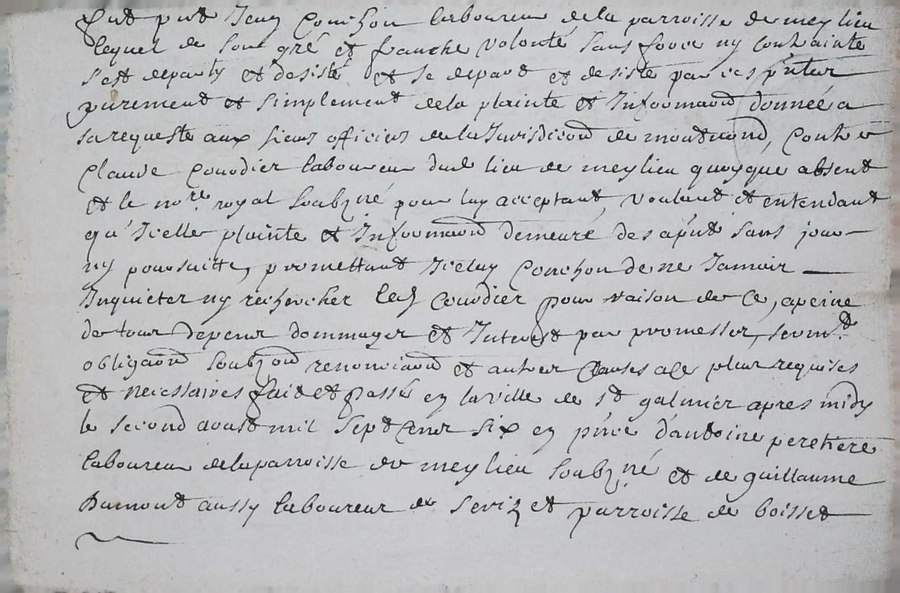 fut pnt Jean Conchon laboureur de la parroisse de meylieu
lequel de son gré et franche volonté sans force ny contrainte
s'est departy et desisté et se depart et desiste par ces pntes
purement et simplement de la plainte et Informaon donnée a
sa requeste aux sieurs officiers de la Jurisdiction de montrond, contre
Claude Couodier laboureur dud lieu de meylieu quoyque absent
et le nore royal soubzné pour luy acceptant, voulant et entendant
qu'Icelle plainte et Informaon demeure des apnt sans jour
ny poursuitte, promettant Iceluy Conchon de ne Jamais
Inquieter ny rechercher led Couodier pour raison de ce, a peine
de tous depens dommages et Interest par promesses, serm.t
obligaon soubzon renonciaon et autres clauses a ce plus requises
et necessaires fait et passé en la ville de st galmier apres midy
le second aoust mil sept cens six en pnce d'antoine peretiere
laboureur de la parroisse de meylieu soubzné et de guillaume
Dumont aussy laboureur de et parroisse de boisset